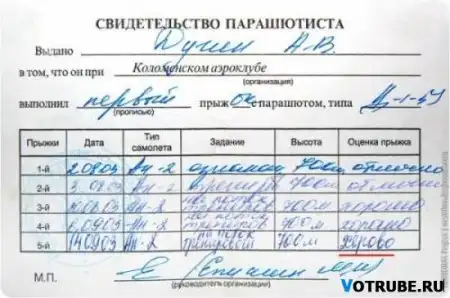 СВИДЕТЕЛЬСТВО ПАРАШЮТИСТА
Выдано Дугин А.В.
в том, что он при Коломенском аэроклубе
(организация)
выполнил первый прыжок с парашютом, типа Д-1-5У
(прописью)
Прыжки Дата Тип самолета Задание Высота Оценка прыжка
1-й 2.08.03 Ан-2 700м отлично
2-й 3.08.03 Ан-2 700м отлично
3-й Ан-2 700м хорошо
4-й 6.09.03 Ан-2 700м хорошо
5-й 14.09.03 Ан-2 700м херово
М.П.
(руководитель организации)
VOTRUBE.RU